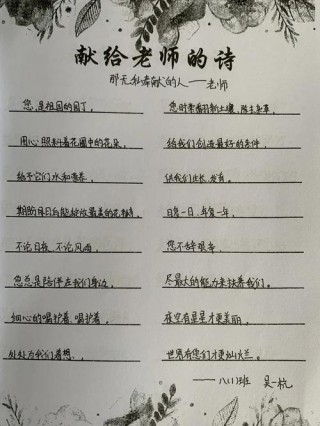 献给老师的诗
那无私奉献的人——老师
您,是祖国的园丁,
用心照料着花圃中的花朵,
给予它们水和营养,
期盼有日能绽放最美的花瓣。
不论日夜,不论风雨,
您总是陪伴在我们身边,
细心的呵护着,呵护着,
处处为我们着想。
您时常翻新土壤,除去杂草,
给我们创造最好的条件,
供我们生长、发育。
日复一日,年复一年,
您不辞艰辛,
尽最大的能力来扶养我们。
夜空有星星才更美丽,
世界有您们才更灿烂。
——八(1)班 吴一杭